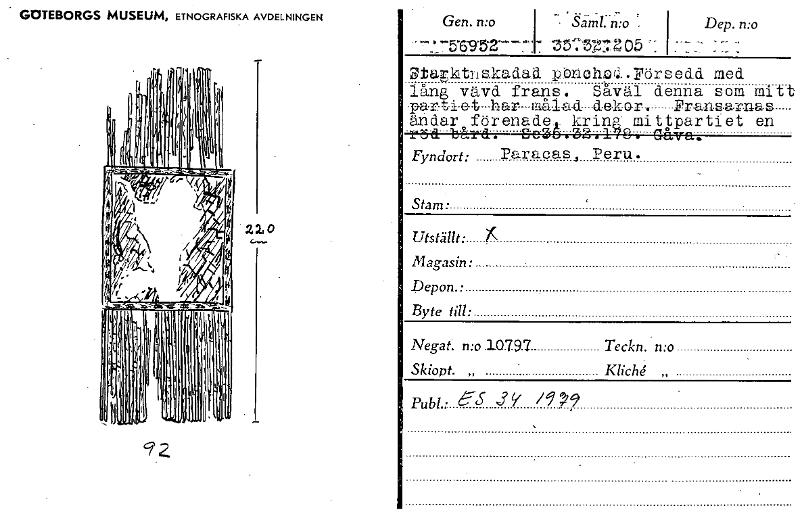 GÖTEBORGS MUSEUM, ETNOGRAFISKA AVDELNINGEN
220
cm
92
Gen. n:o Saml. n:o Dep. n:o
56952 35.32.205
Starktnskadad ponchod. Försedd med
lång vävd frans. Såväl denna som mitt
partiet har målad dekor. Fransarnas
ändar förenade, kring mittpartiet en
röd bård. Se35.32.179. Gåva.
Fyndort: Paracas, Peru.
Stam:
Utställt: X
Magasin:
Depon.:
Byte till:
Negat. n:o 10797 Teckn. n:o
Skiopt. „ Kliché „
Publ.: ES 34 1979